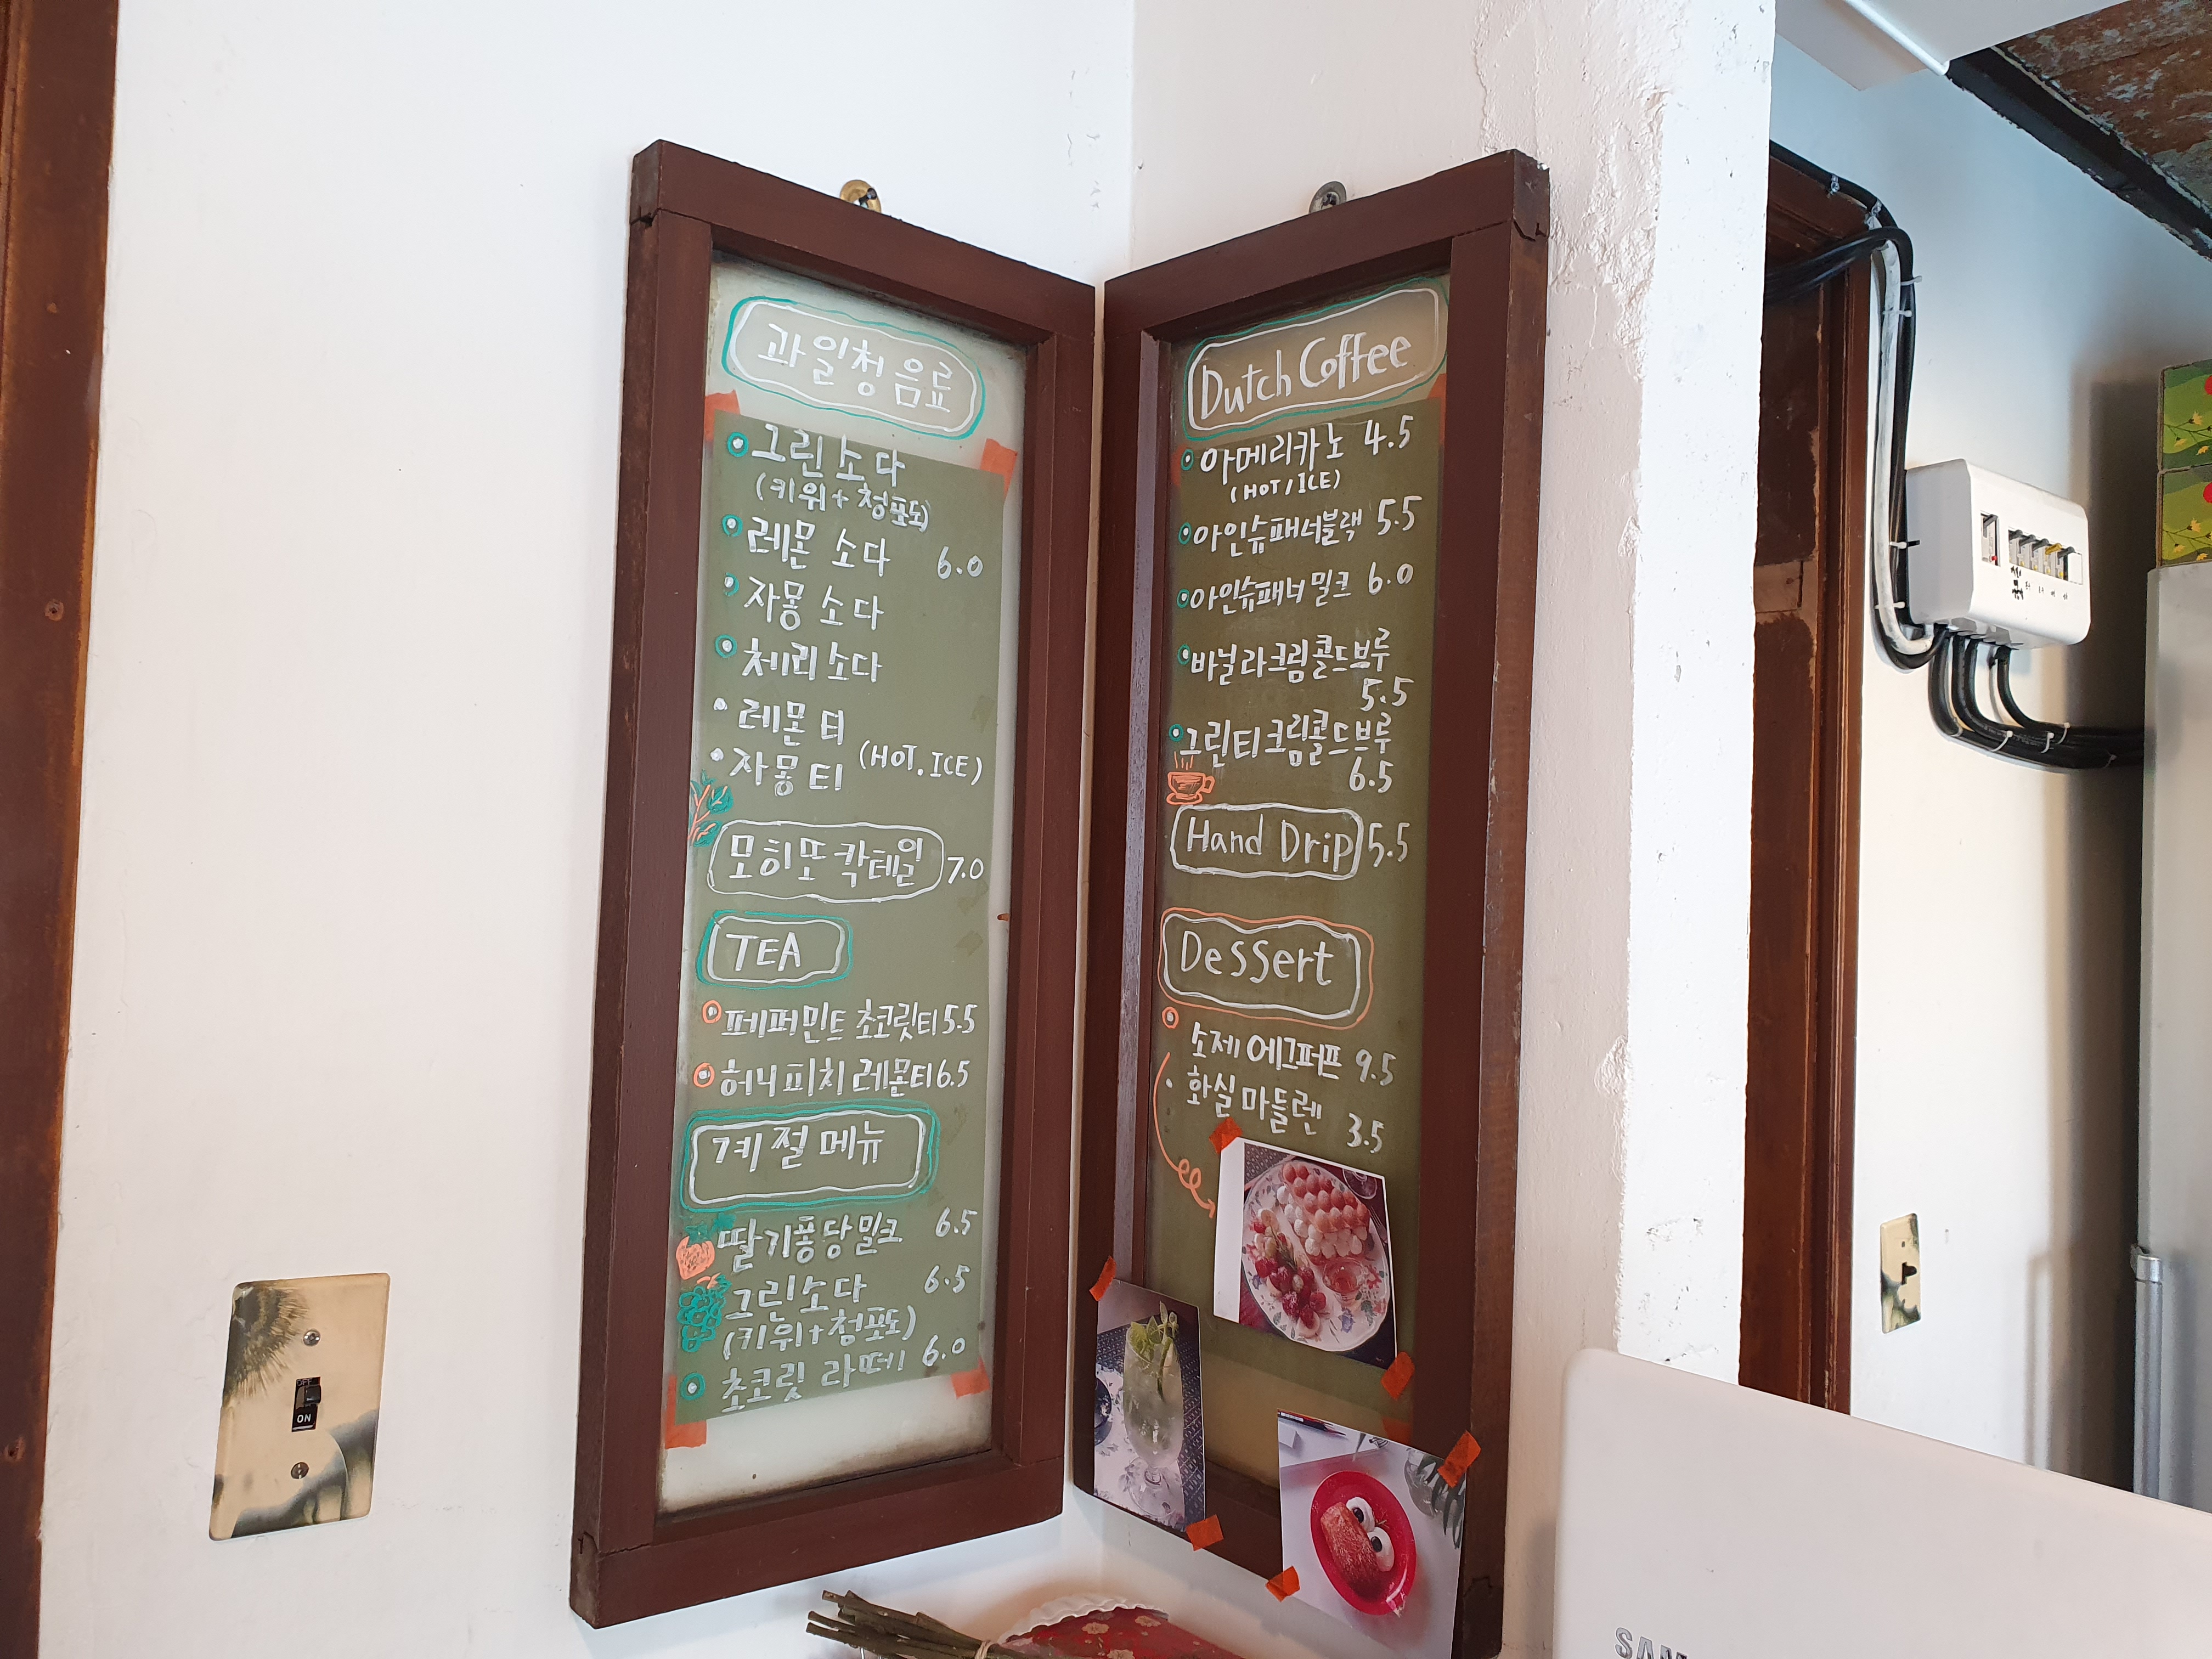 과일청 음료
그린 소다
(키위 + 청포도)
레몬 소다 6.0
자몽 소다
체리 소다
레몬 티
자몽 티 (HOT. ICE)
모히또 칵테일 7.0
TEA
페퍼민트 초코릿티 5.5
허니 피치 레몬티 6.5
계절 메뉴
딸기퐁당밀크 6.5
그린소다 6.5
(키위+청포도)
초코릿 라떼 6.0
Dutch Coffee
아메리카노 4.5
(HOT/ICE)
아인슈패너블랙 5.5
아인슈패너 밀크 6.0
바닐라크림콜드브루
5.5
그린티크림콜드브루
6.5
Hand Drip 5.5
Dessert
소제 에그퍼프 9.5
화실 마들렌 3.5
ON
SAM